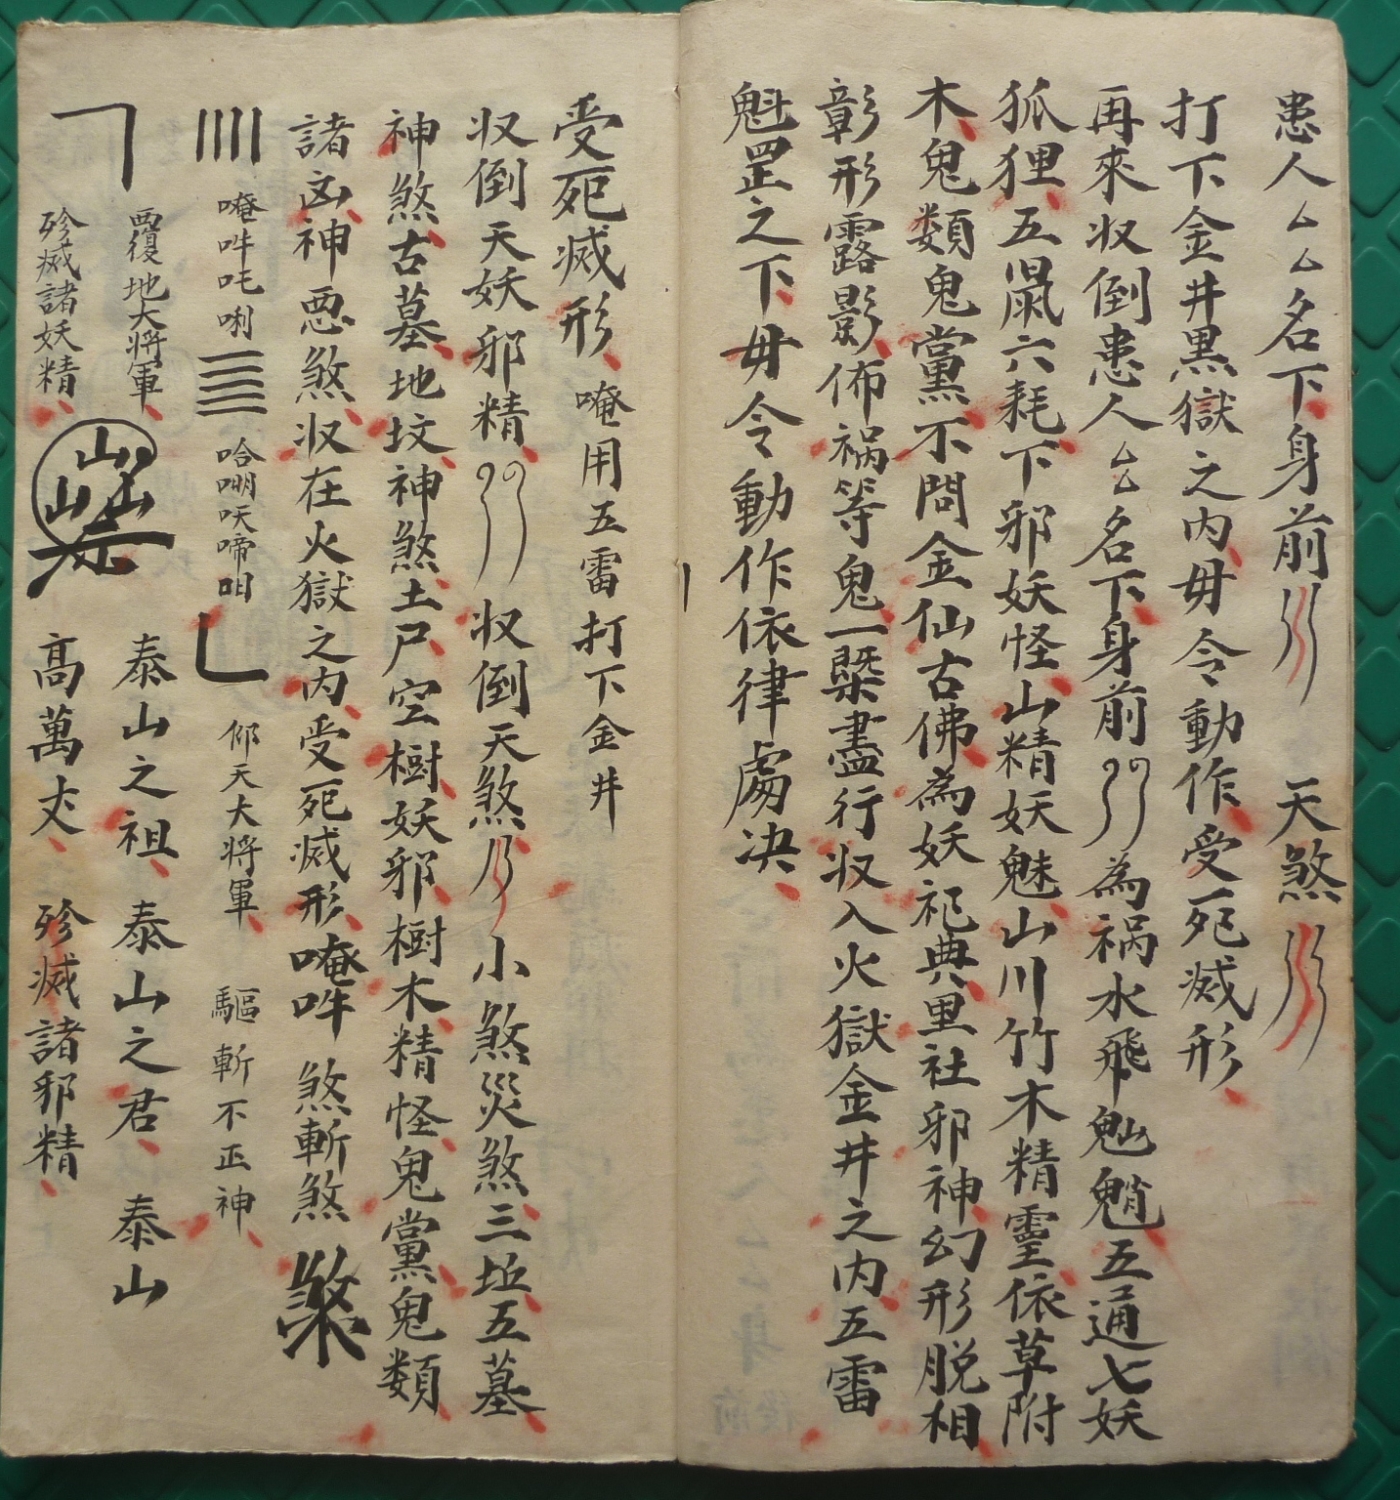 患人厶厶名下身前 天煞
打下金井黒獄之内毋令動作受死滅形
再來収倒患人厶厶名下身前 為祸水飛魈五通七妖
狐狸五鼠六耗下邪妖怪山精妖魅山川竹木精靈依草附
木鬼類鬼黨不問金仙古佛為妖祀典里社邪神幻形脱相
彰形露影佈祸等鬼一槩盡行収入火獄金井之内五雷
魁罡之下毋令動作依律處决
受死滅形 唵用五雷打下金井
収倒天妖邪精 収倒天煞 小煞災煞三坵五墓
神煞古墓地坟神煞土尸空樹妖邪樹木精怪鬼黨鬼類
諸凶神惡煞収在火獄之内受死滅形唵吽 煞斬煞
唵吽吒唎 哈𠵇吠啼呬 仰天大將軍 驅斬不正神
覆地大將軍 泰山之祖 泰山之君 泰山
殄滅諸妖精 髙萬丈 殄滅諸邪精